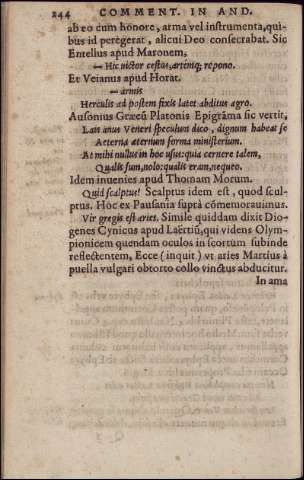 244 COMMENT. IN AND.
ab eo cum honore, arma vel instrumenta, qui-
bus id peregerat, alicui Deo consecrabat. Sic
Entellus apud Maronem,
— Hic victor cestus, artémq; repono.
Et Veianus apud Horat.
— armis
Herculis ad postem fixis latet abditus agro.
Ausonius Græcū Platonis Epigrāma sic vertit,
Lais anus Veneri speculum dico, dignum habeat se
Aeterna æternum forma ministerium.
At mihi nullus in hoc vsus: quia cernere talem,
Qualis sum, nolo: qualis eram, nequeo.
Idem inuenies apud Thomam Morum.
Quid scalptus? Scalptus idem est, quod scul-
ptus. Hoc ex Pausania suprà cōmemorauimus.
Vir gregis est aries. Simile quiddam dixit Dio-
genes Cynicus apud Laërtiū, qui videns Olym-
pionicem quendam oculos in scortum subinde
reflectentem, Ecce (inquit) vt aries Martius à
puella vulgari obtorto collo vinctus abducitur.
In ama